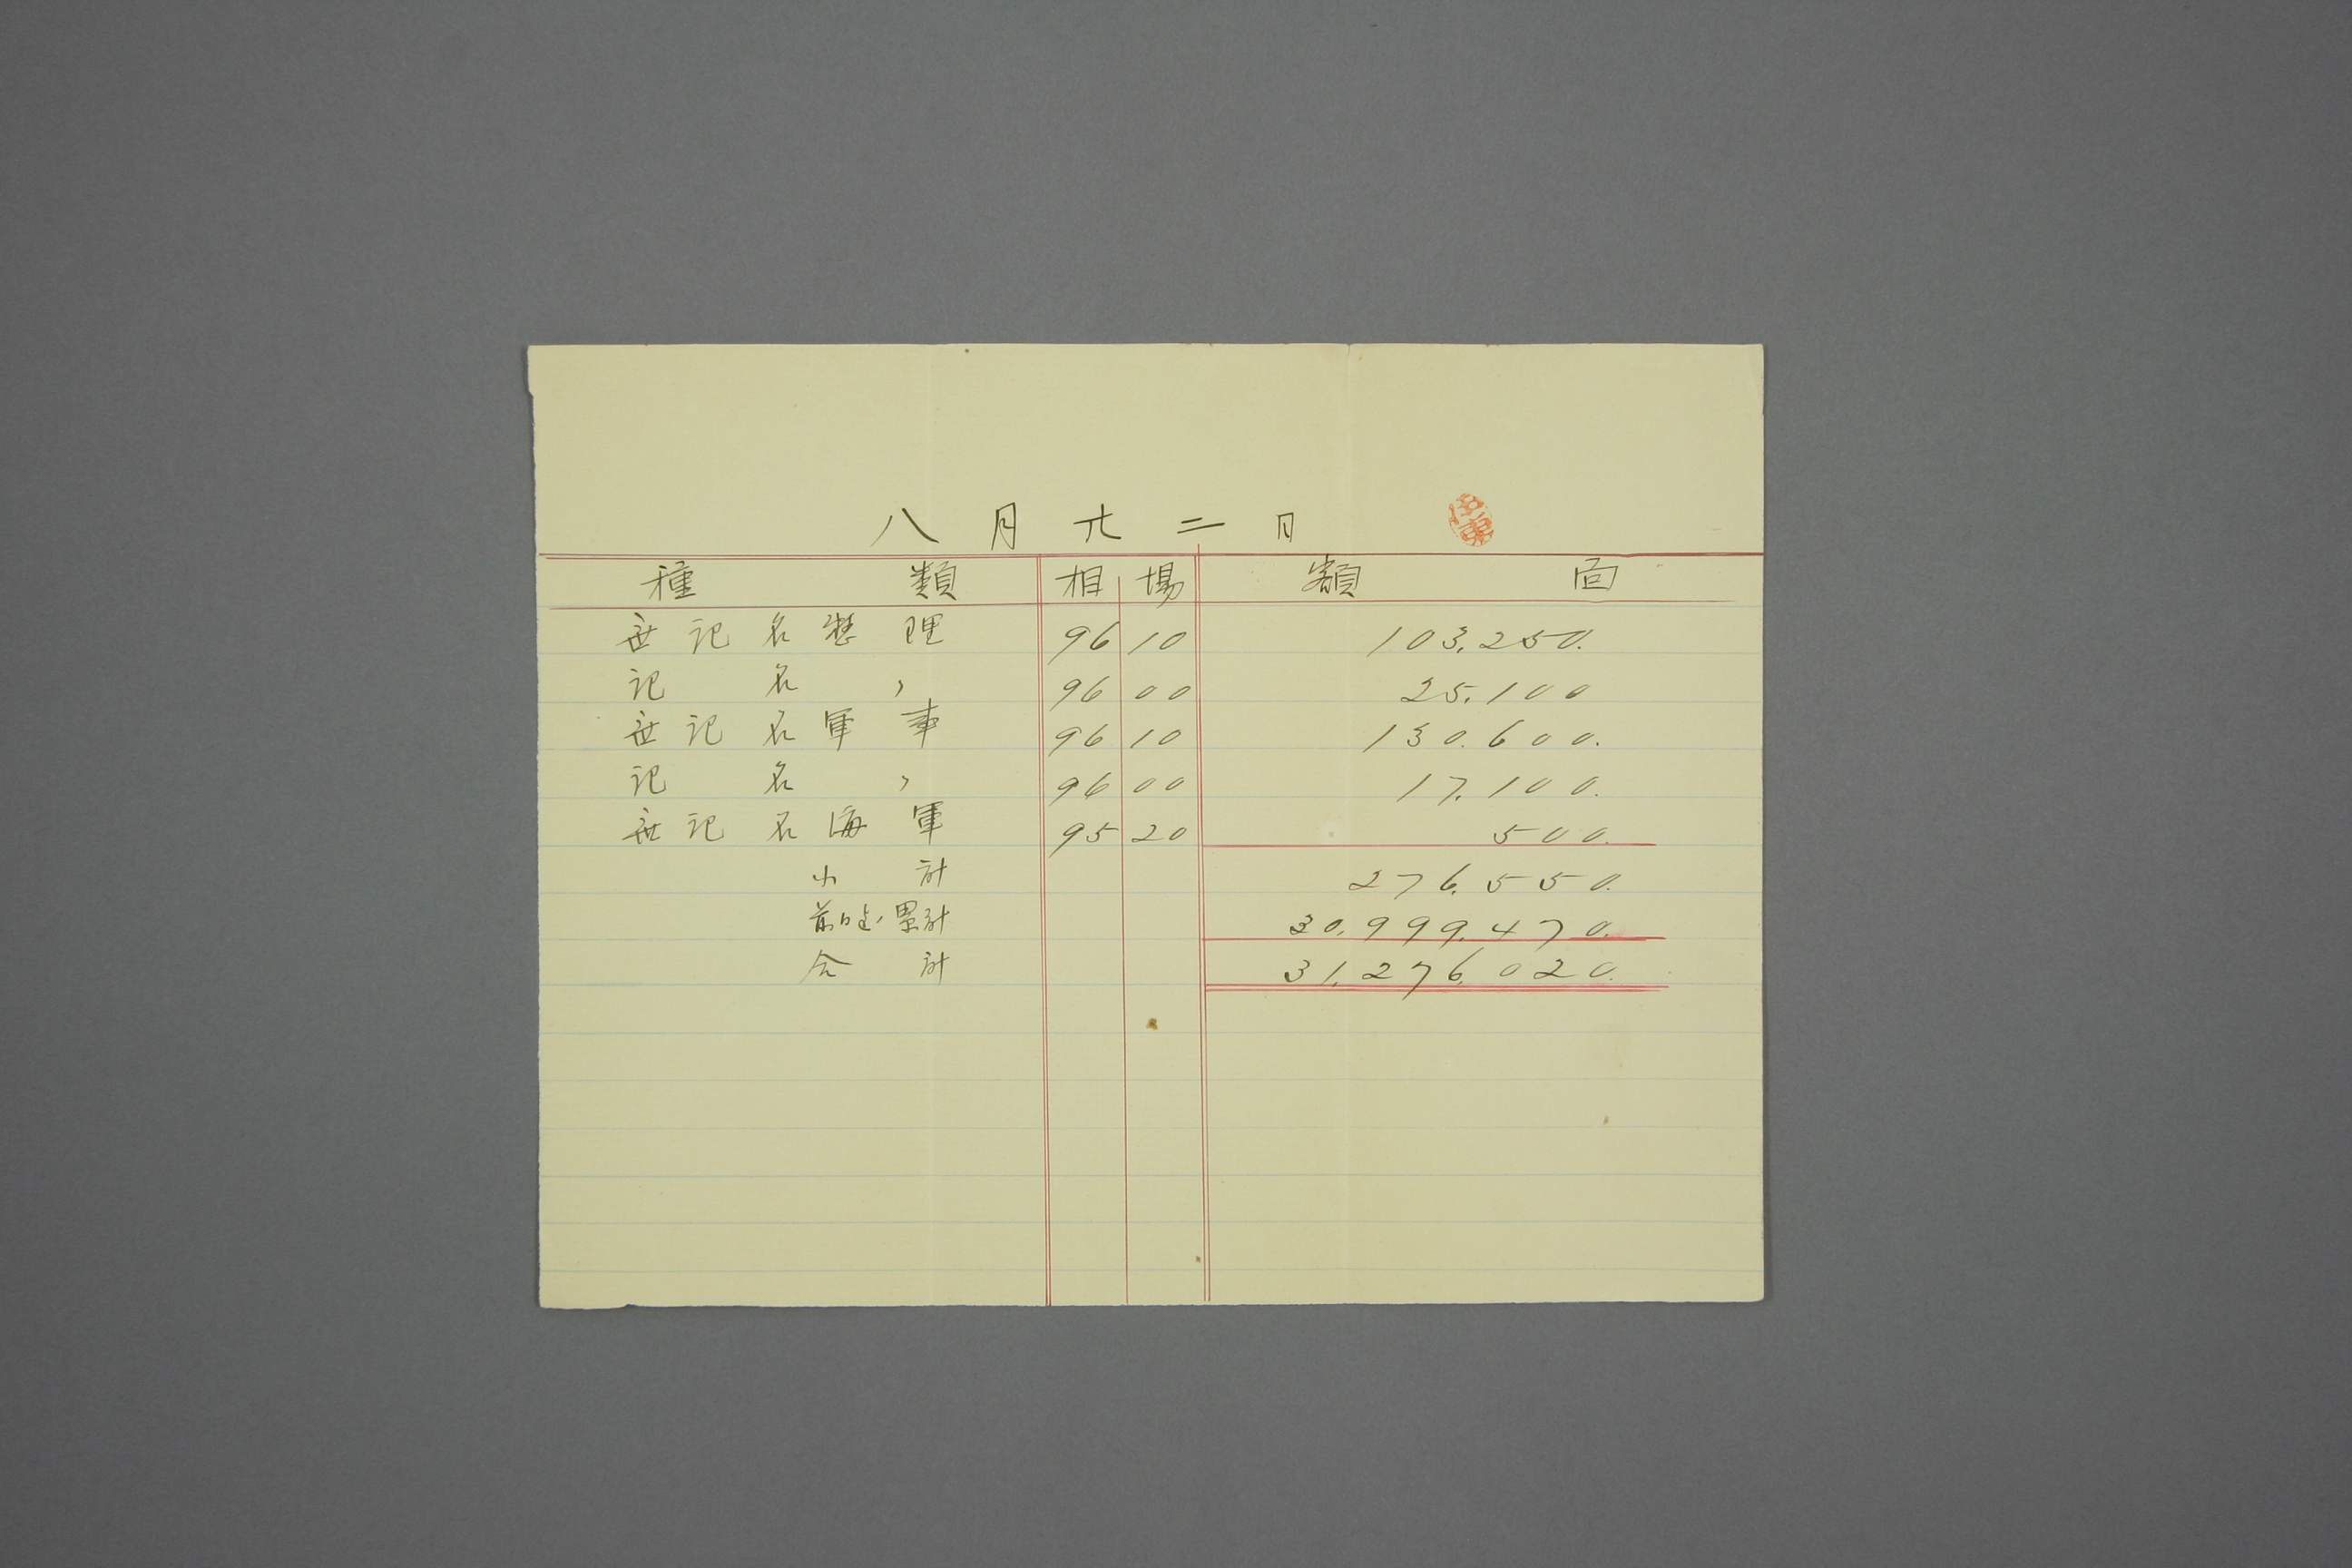 八月廿二日
種類 相場 額面
無記名整理 96 10 103,250.
記名〃 96 00 25,100
無記名軍事 96 10 130,600.
記名〃 96 00 17,100.
無記名海軍 95 20 500.
小計 276,550.
前日迄ノ累計 30,999,470.
合計 31,276,020.